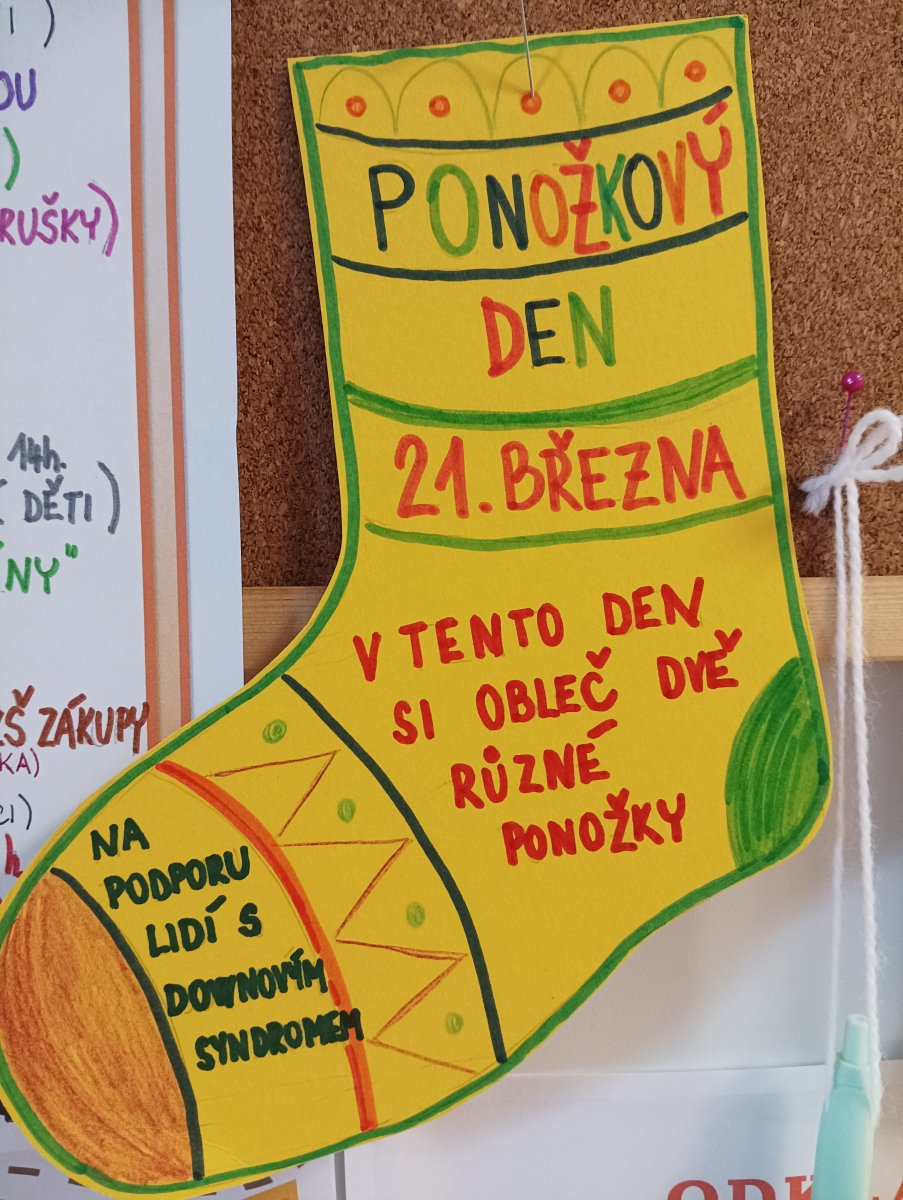 PONOŽKOVÝ
DEN
21. BŘEZNA
V TENTO DEN
SI OBLEČ DVĚ
RŮZNÉ
PONOŽKY
NA
PODPORU
LIDÍ S
DOWNOVÝM
SYNDROMEM
OU
)
RUŠKY)
14h.
DĚTI)
NY"
ZŠ ZÁKUPY
KA)
h